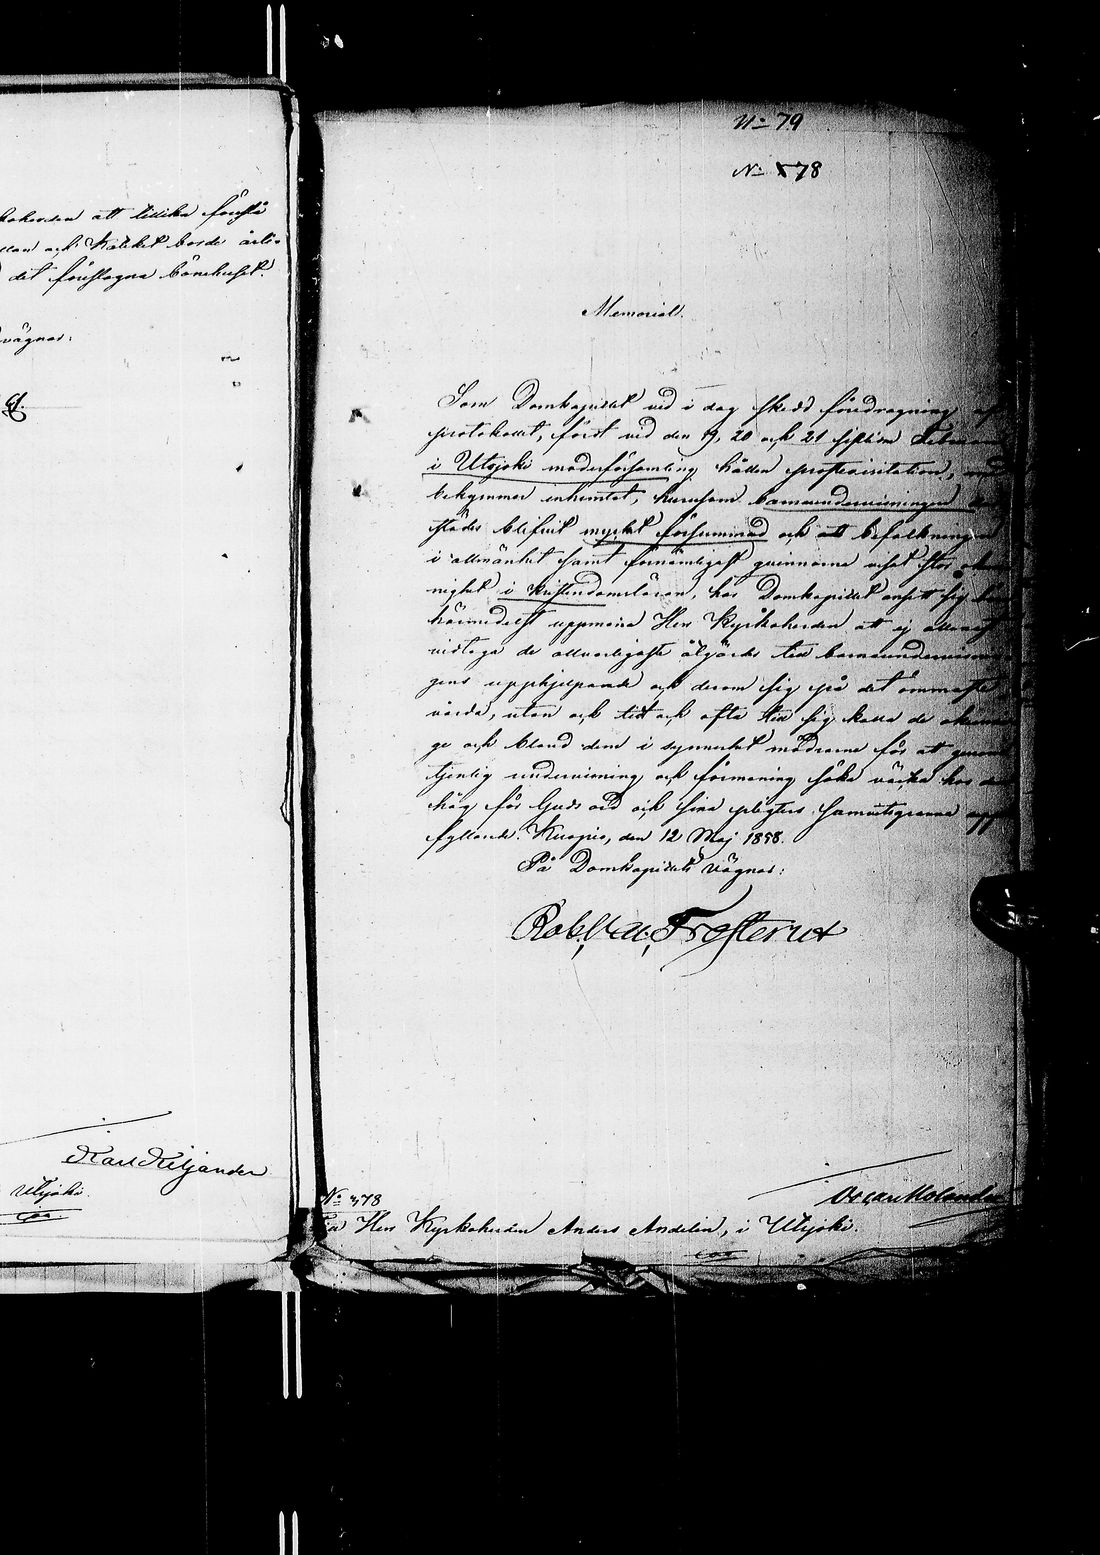 att tillika förestå
och Katichet borde årli-
det föreslagna bönehuset.
vägnar:
Karl Kiljander
Utsjoki.
No 79
No 78
Memorial.
Som Domkapitlet vid i dag skedd föredragning af
protokollet, fördt vid den 19, 20 och 21 sistlidne Februarii
i Utsjoki moderförsamling hållen prostvisitation, med
bekymmer inhemtat, hurusom barnaundervisningen
städes blifvit mycket försummad och att befolkningen
i allmänhet samt förnämligast qvinnorna röjt stor okun-
nighet i kristendomsläran, har Domkapitlet ansett sig böra
härmedelst uppmana Herr Kyrkoherden att ej allenast
vidtaga de allvarligaste åtgärder till barnaundervisnin-
gens upphjelpande och derom sig på det ömmaste
vårda, utan och tidt och ofta till sig kalla de okunni-
ge och bland dem i synnerhet mödrarne för att genom
tjenlig undervisning och förmaning söka väcka hos dem
håg för Guds ord och sina pligters samvetsgranna upp-
fyllande. Kuopio, den 12 Maj 1858.
På Domkapitlets vägnar:
Rob. V. Frosterus
Oscar Molander
No 378
Till Herr Kyrkoherden Anders Andelin, i Utsjoki.